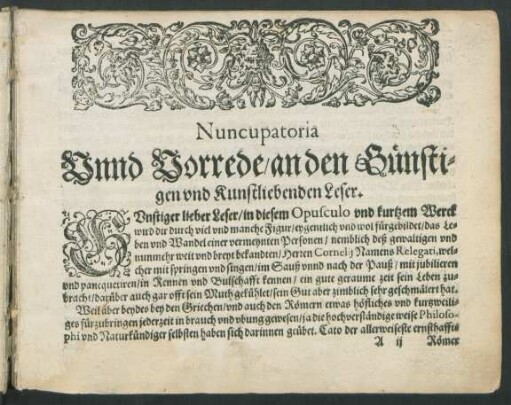 Nuncupatoria
Vnnd Vorrede/an den Günsti-
gen vnd Kunstliebenden Leser.
GVnstiger lieber Leser/in diesem Opusculo vnd kurtzem Werck
wird dir durch viel vnd manche Figur/eygentlich vnd wol fürgebildet/das Le-
ben vnd Wandel einer vermeynten Personen/ nemblich deß gewaltigen vnd
nunmehr weit vnd breyt bekandten/Herren Cornelij Namens Relegati, wel-
cher mit springen vnd singen/im Sauß vnnd nach der Pauß/ mit jubilieren
vnd pancqueturen/in Rennen vnd Bulschafft kennen / ein gute geraume zeit sein Leben zu-
bracht/darüber auch gar offt sein Muth gekühlet/sein Gut aber zimblich sehr geschmälert hat.
Weil aber beydes bey den Griechen/vnd auch den Römern etwas höfliches vnd kurtzweili-
ges fürzubringen jederzeit in brauch vnd vbung gewesen/ja die hochverständige weise Philoso-
phi vnd Naturkündiger selbsten haben sich darinnen geübet. Cato der allerweiseste ernsthaffte
A ij Römer